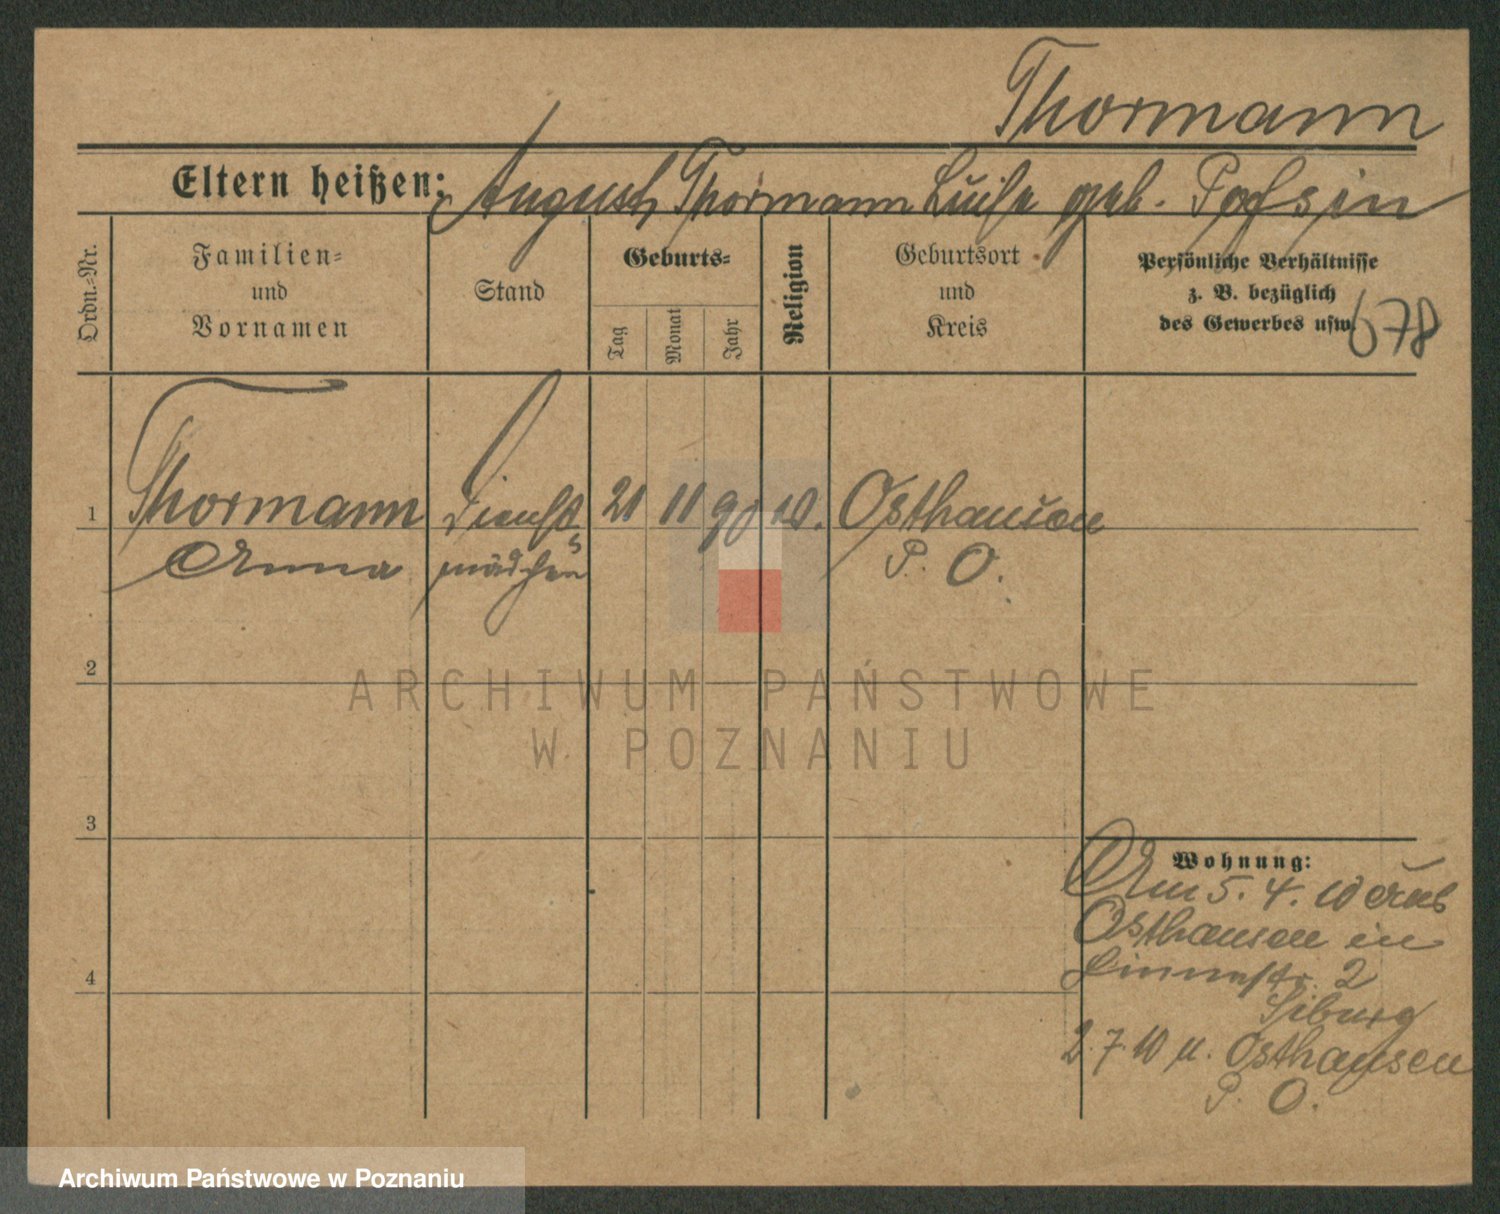 Thormann
Eltern heißen: August Thormann Luise geb.
Ordn.-Nr.
Familien-
und
Vornamen
Stand
Geburts-
Tag
Monat
Jahr
Religion
Geburtsort
und
Kreis
Persönliche Verhältnisse
z. B. bezüglich
des Gewerbes usw.
678
1
Thormann Dienst 21 11 90 Osthausen
Anna mädchen P. O.
2
3
4
Wohnung:
Am 5. 4. 10 aus
Osthausen in
2
2. 7. 10 n. Osthausen
P. O.
ARCHIWUM PAŃSTWOWE
W POZNANIU
Archiwum Państwowe w Poznaniu